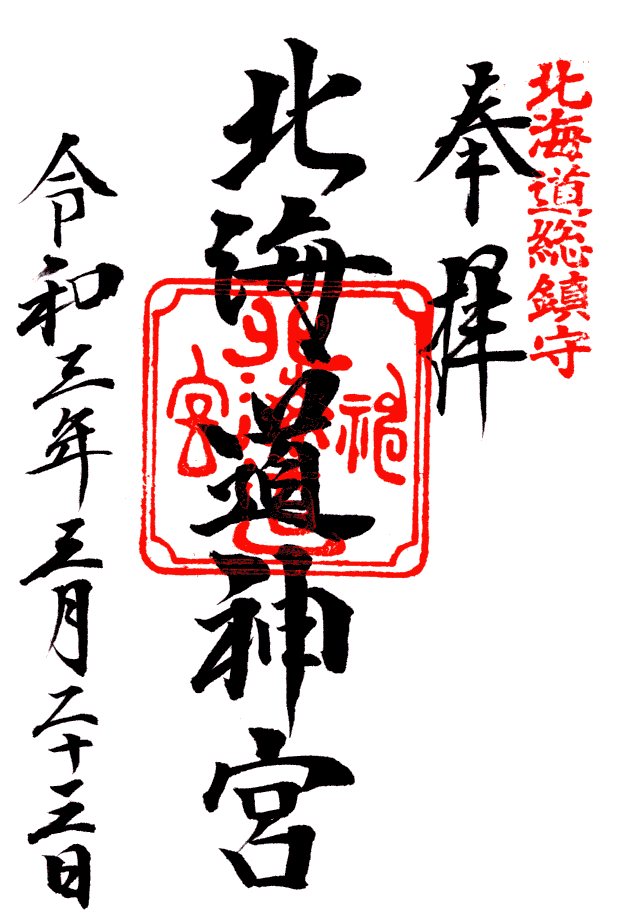 北海道総鎮守
奉拝
北海道神宮
北海道神宮
令和三年三月二十三日